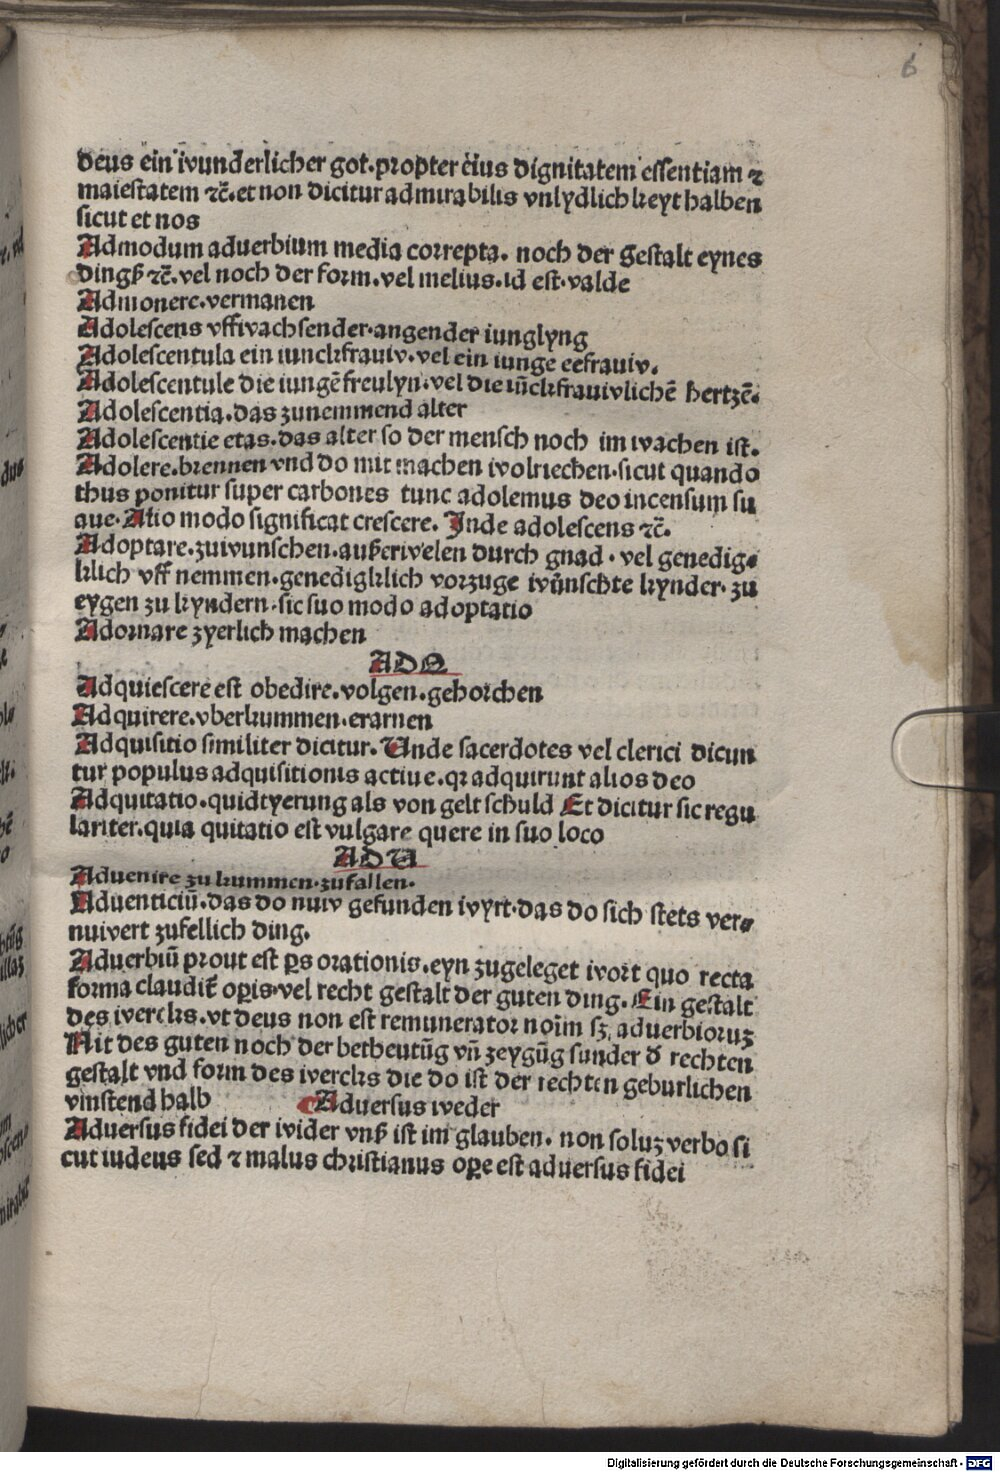 6
deus ein wunderlicher got.propter eius dignitatem essentiam ⁊
maiestatem ⁊c̄.et non dicitur admirabilis vnlydlichkeythalben
sicut et nos
Admodum aduerbium media correpta. noch der gestalt eynes
dingß ⁊c̄.vel noch der form.vel melius.id est.valde
Admonere.vermanen
Adolescens vffwachsender.angender iunglyng
Adolescentula ein iunckfrauw.vel ein iunge eefrauw.
Adolescentule die iungē freulyn.vel die iūckfrauwlichē hertzē.
Adolescentia.das zunemmend alter
Adolescentie etas.das alter so der mensch noch im wachen ist.
Adolere.brennen vnd do mit machen wolriechen.sicut quando
thus ponitur super carbones tunc adolemus deo incensum su
aue.Alio modo significat crescere. Inde adolescens ⁊c̄.
Adoptare.zuwunschen.außerwelen durch gnad.vel genedig⸗
klich vff nemmen.genedigklich vorzuge wůnschte kynder.zu
eygen zu kyndern.sic suo modo adoptatio
Adornare zyerlich machen
ADQ
Adquiescere est obedire.volgen.gehorchen
Adquirere.vberkummen.erarnen
Adquisitio similiter dicitur.Unde sacerdotes vel clerici dicun
tur populus adquisitionis actiue.qꝛ adquirunt alios deo
Adquitatio.quidtyerung als von gelt schuld Et dicitur sic regu
lariter.quia quitatio est vulgare quere in suo loco
ADU
Aduenire zu kummen.zufallen.
Aduenticiū.das do nuw gefunden wyrt.das do sich stets ver⸗
nuwert zufellich ding.
Aduerbiū prout est ꝑs orationis.eyn zugeleget wort quo recta
forma claudit̄ oꝑis.vel recht gestalt der guten ding.Ein gestalt
des wercks.vt deus non est remunerator noīm sꝫ aduerbioruꝫ
Nit des guten noch der betheutūg vn̄ zeygūg sunder d̄ rechten
gestalt vnd form des wercks die do ist der rechten geburlichen
vmstend halb Aduersus weder
Aduersus fidei der wider vnß ist im glauben. non soluꝫ verbo si
cut iudeus sed ⁊ malus christianus oꝑe est aduersus fidei
Digitalisierung gefördert durch die Deutsche Forschungsgemeinschaft - DFG